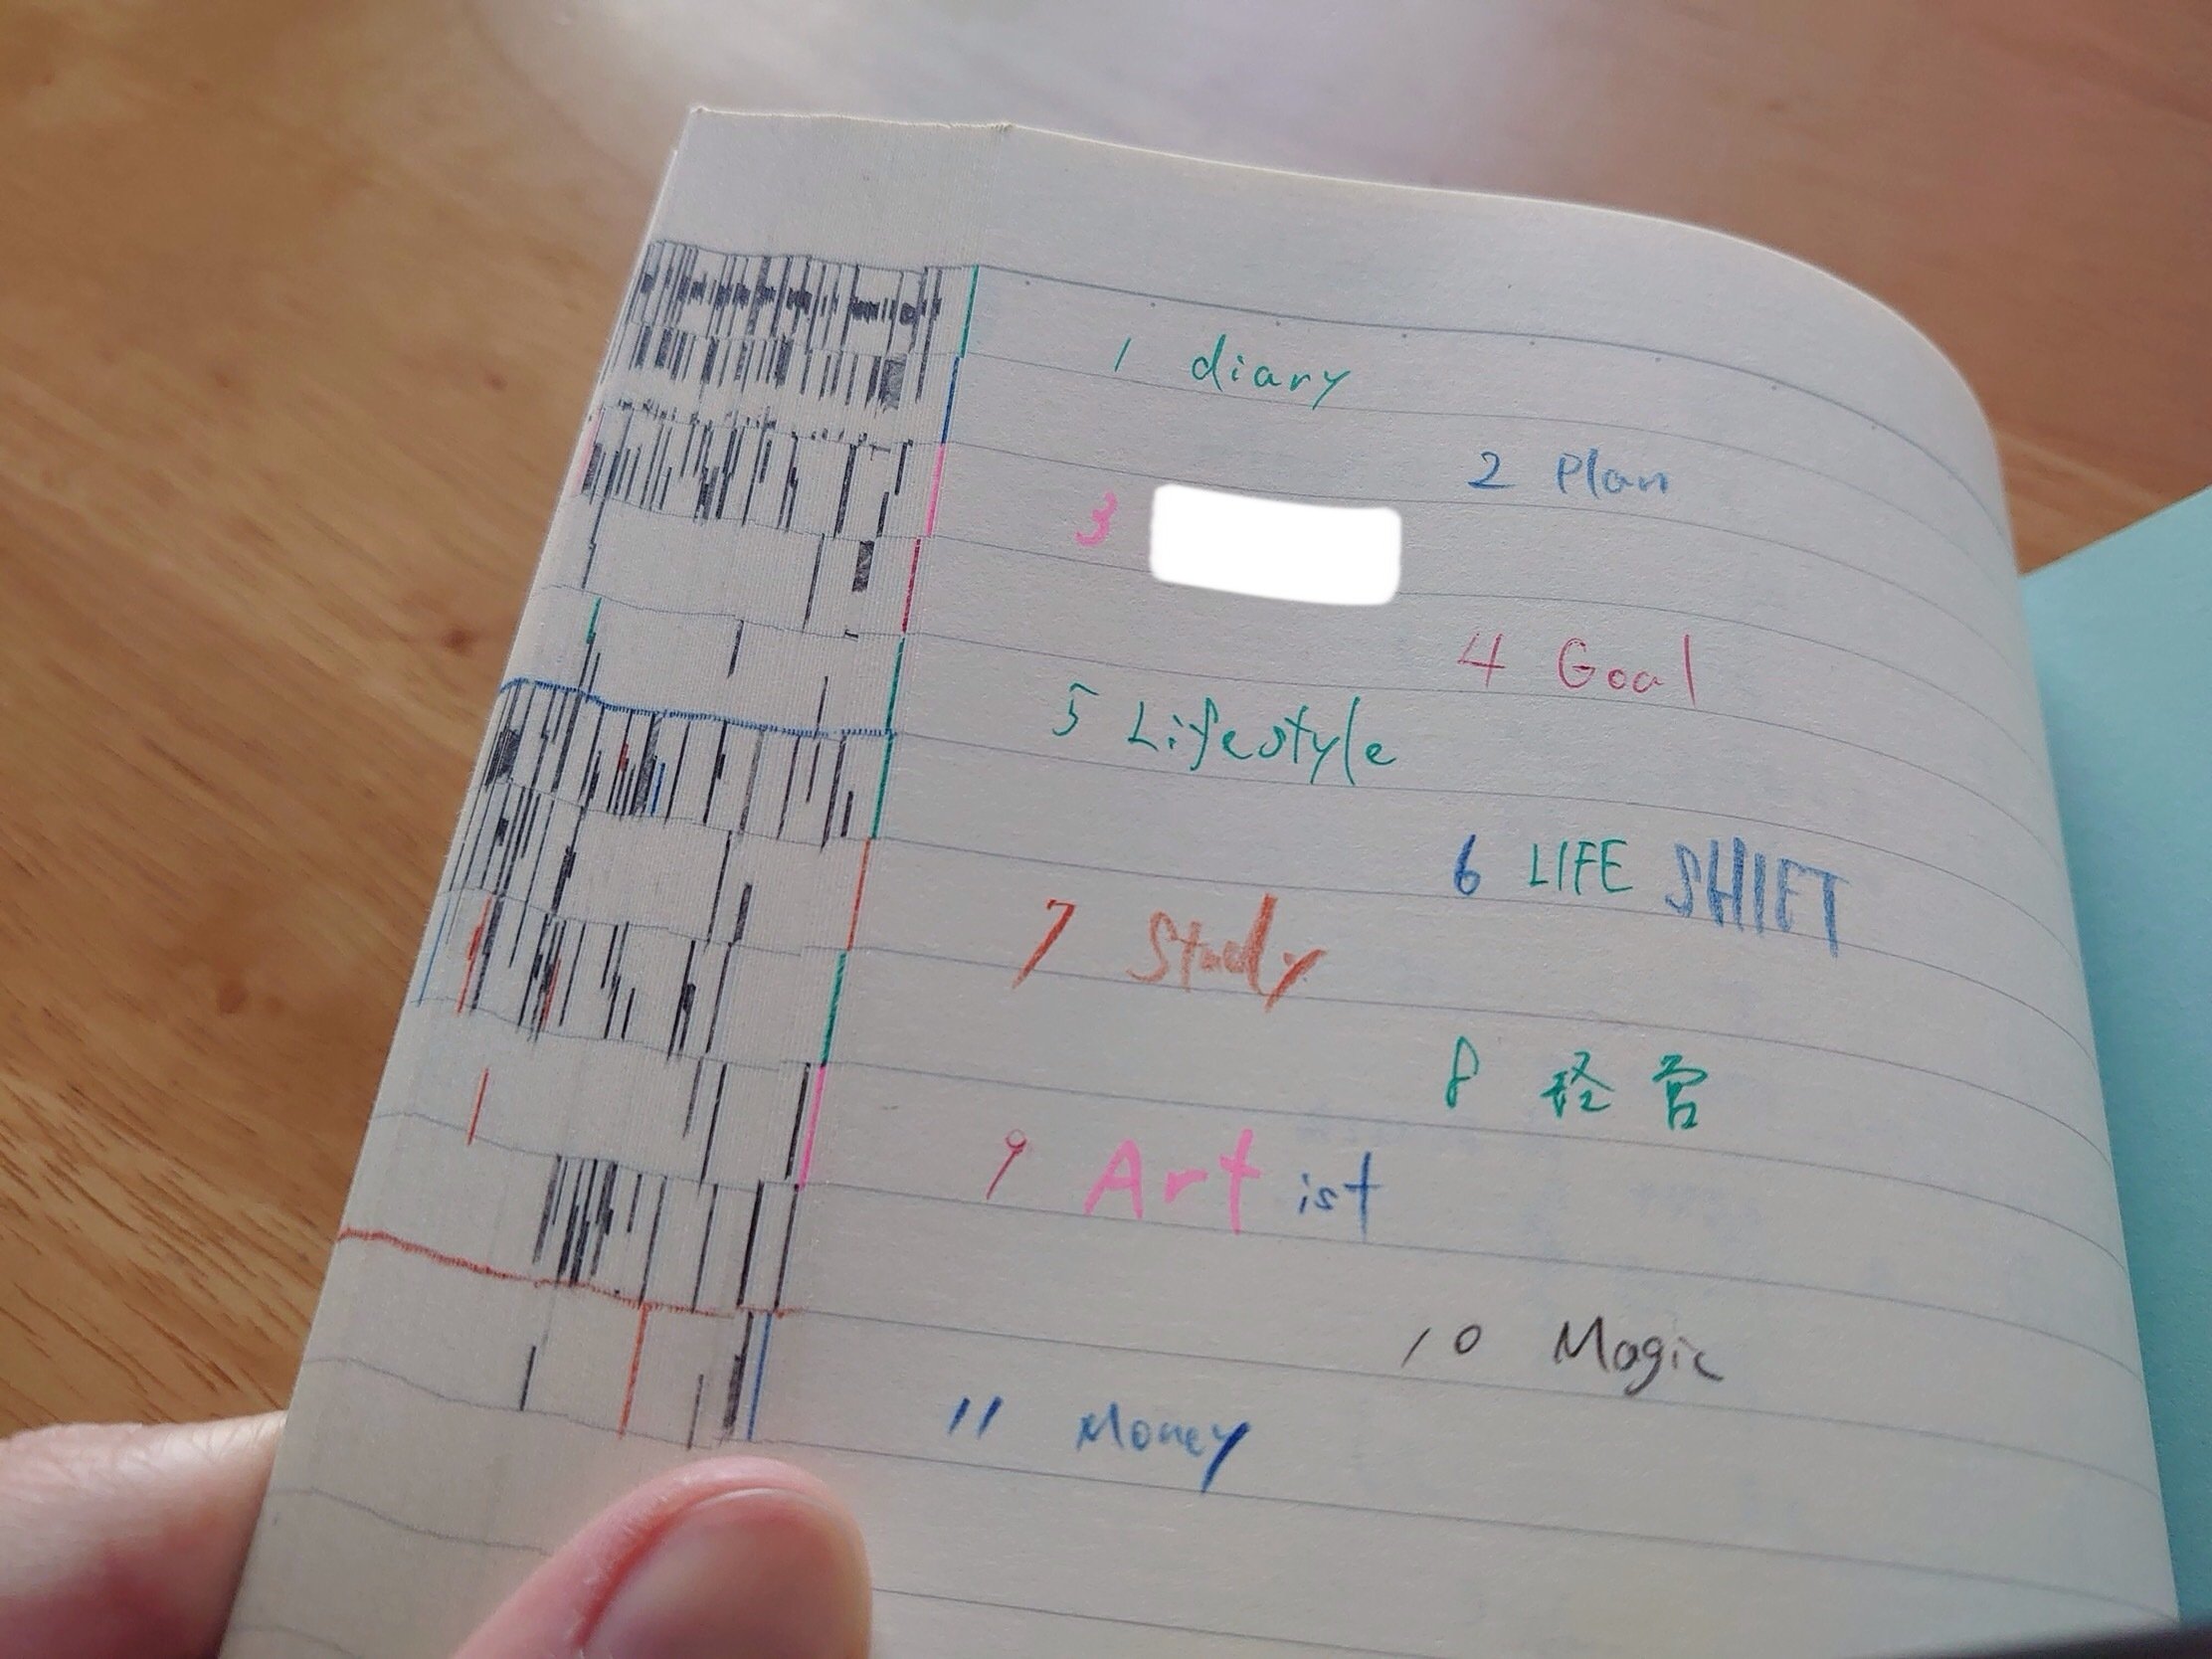 1 diary
2 Plan
3
4 Goal
5 Lifestyle
6 LIFE SHIFT
7 Study
8 経営
9 Artist
10 Magic
11 Money